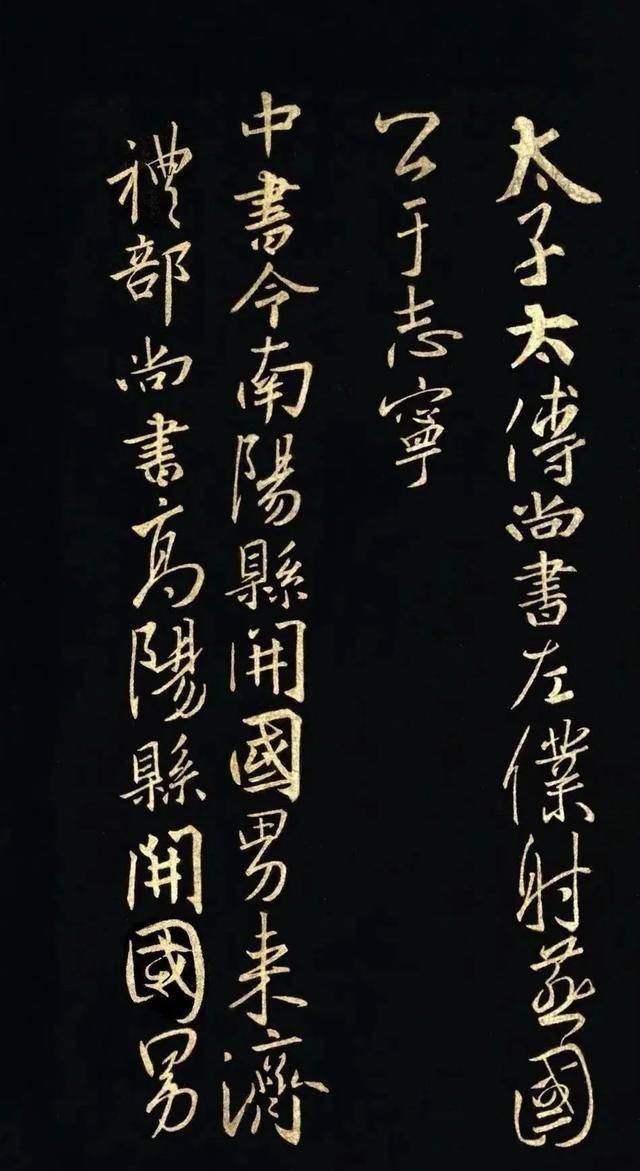 太子太傅尚書左僕射燕國
公于志寧
中書令南陽縣開國男来濟
禮部尚書高陽縣開國男